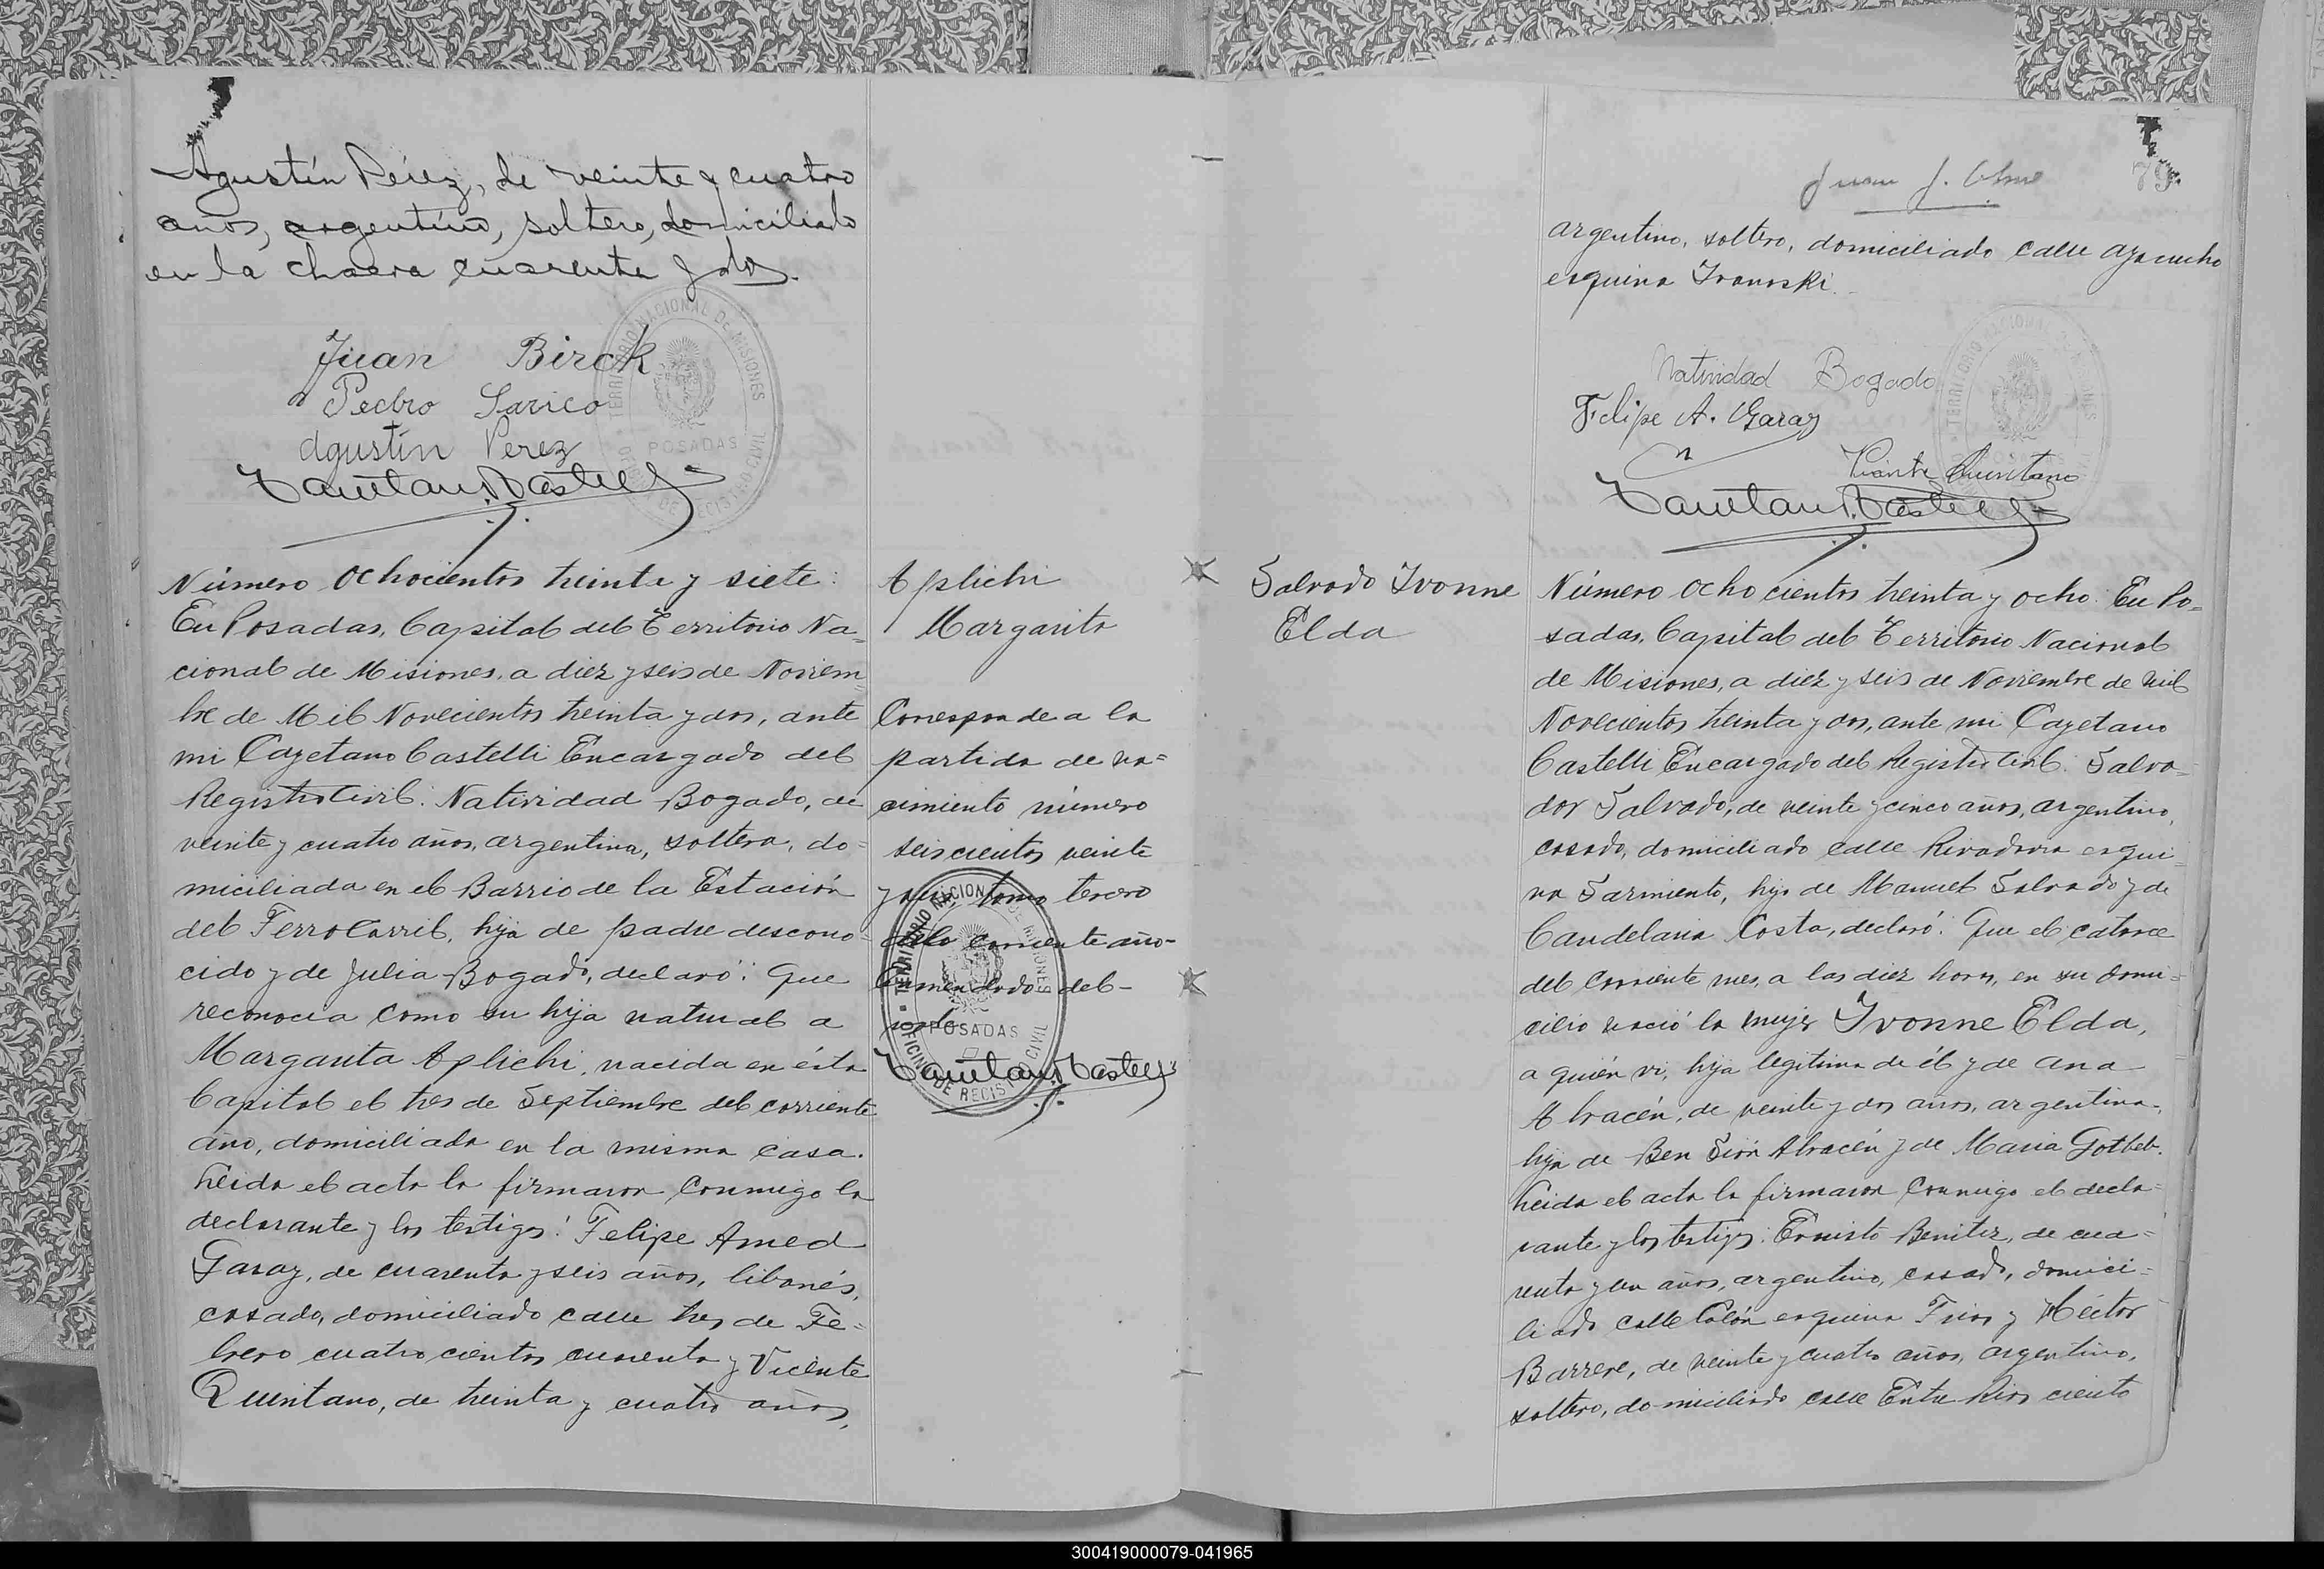 Agustín Pérez, de veinte y cuatro
años, argentino, soltero, domiciliado
en la chacra cuarenta y dos.
Juan Birck
Pedro Sarico
Agustín Perez
TERRITORIO NACIONAL DE MISIONES
POSADAS
Número Ochocientos treinta y siete:
En Posadas, Capital del Territorio Na=
cional de Misiones, a diez y seis de Noviem
bre de Mil Novecientos treinta y dos, ante
mi Cayetano Castelli Encargado del
Registro Civil: Natividad Bogado, de
veinte y cuatro años, argentina, soltera, do=
miciliada en el Barrio de la Estación
del Ferrocarril, hija de padre descono=
cido y de Julia Bogado, declaró: Que
reconocia como su hija natural a
Margarita Aplichi, nacida en ésta
Capital el tres de Septiembre del corriente
año, domiciliada en la misma casa.
Leida el acta la firmaron conmigo la
declarante y los testigos: Felipe Amed
Garay, de cuarenta y seis años, libanés,
casado, domiciliado calle tres de Fe=
brero cuatrocientos cuarenta y Vicente
Quintano, de treinta y cuatro años,
Aplichi
Margarita
Corresponde a la
partida de na=
cimiento número
seiscientos veinte
tomo tercero
corriente año-
Enmendado del-
TERRITORIO NACIONAL DE MISIONES
POSADAS
OFICINA DE REGISTRO CIVIL
79
Juan J.
argentino, soltero, domiciliado calle Ayacucho
esquina Ivanoski.
Natividad Bogado
Felipe A. Garay
Vicente Quintano
Salvado Ivonne
Elda
Número Ochocientos treinta y ocho: En Po=
sadas, Capital del Territorio Nacional
de Misiones, a diez y seis de Noviembre de Mil
Novecientos treinta y dos, ante mi Cayetano
Castelli Encargado del Registro Civil: Salva=
dor Salvado, de veinte y cinco años, argentino,
casado, domiciliado calle Rivadavia esqui=
na Sarmiento, hijo de Manuel Salvado y de
Candelaria Costa, declaró: Que el catorce
del corriente mes, a las diez horas, en su domi=
cilio nació la mujer Ivonne Elda,
a quién vi, hija legitima de él y de Ana
Abracén, de veinte y dos años, argentina,
hija de Ben Sión Abracén y de Maria Gotbeb.
Leida el acta la firmaron conmigo el decla=
rante y los testigos: Ernesto Benitez, de cua=
renta y un años, argentino, casado, domici=
liado calle Colón esquina Frias y Héctor
Barrere, de veinte y cuatro años, argentino,
soltero, domiciliado calle Entre Rios ciento
300419000079-041965